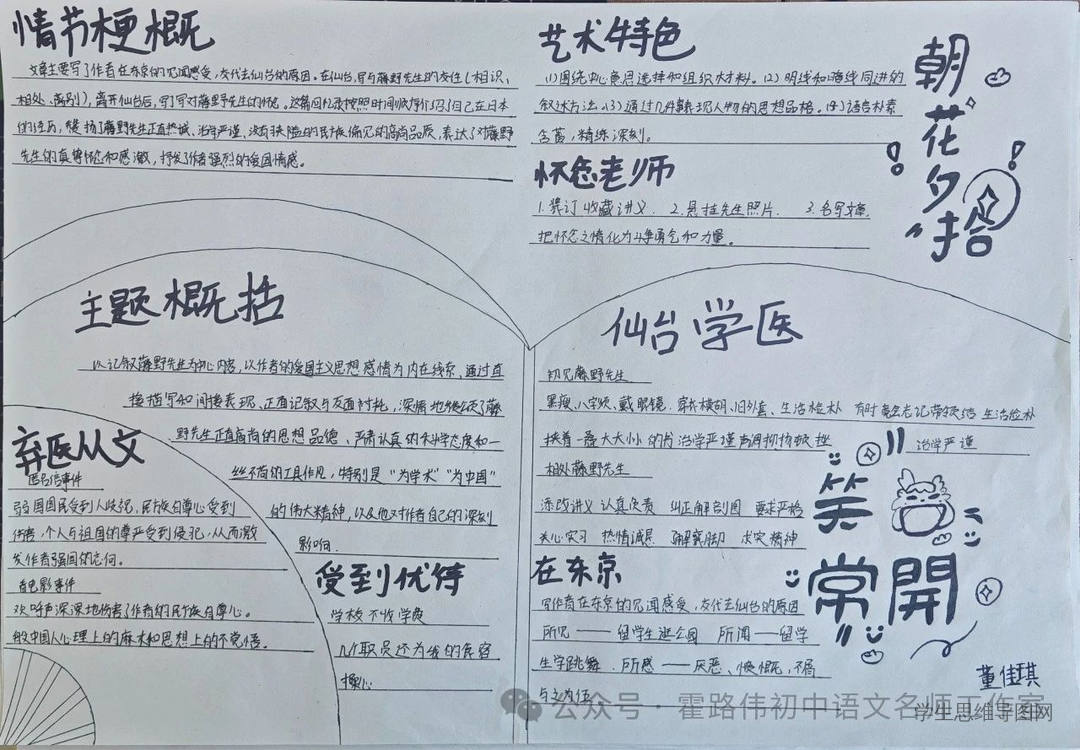 情节梗概
文章主要写了作者在东京的见闻感受,交代去仙台的原因。在仙台,写与藤野先生的交往(相识、
相处、离别),离开仙台后,写了写对藤野先生的怀念。这篇回忆录按照时间顺序介绍了自己在日本
的经历,赞扬了藤野先生正直热诚、治学严谨、没有狭隘的民族偏见的高尚品质,表达了对藤野
先生的真挚怀念和感激,抒发了作者强烈的爱国情感。
艺术特色
(1)围绕中心意思选择和组织大材料。(2)明线和暗线同进的
叙述方法。(3)通过几件事表现人物的思想品格。(4)语言朴素
含蓄,精练深刻。
怀念老师
1.装订收藏讲义. 2.悬挂先生照片. 3.多写文章.
把怀念之情化为斗争勇气和力量。
朝花夕拾
主题概括
以记叙藤野先生为中心内容,以作者的爱国主义思想感情为内在线索,通过直
接描写和间接表现、正面记叙与反面衬托,深情地
野先生正直高尚的思想品德、严肃认真的
丝不苟的工作作风,特别是“为学术”“为中国”
的伟大精神,以及他对作者自己的深刻
影响.
弃医从文
匿名信事件
弱国国民受到人歧视,民族自尊心受到
伤害,个人与祖国的尊严受到侵犯,从而激
发作者强国的志向。
看电影事件
欢呼声深深地伤害了作者的民族自尊心。
的中国人心理上的麻木和思想上的不觉悟。
受到优待
学校不收学费
几个职员还为我的食宿
操心
仙台学医
初见藤野先生
黑瘦、八字须、戴眼镜. 穿衣模胡、旧外套、生活检朴 有时竟会忘记带领结 生活俭朴
挟着一叠大大小小的书 治学严谨 声调抑扬顿挫
治学严谨
相处藤野先生
添改讲义 认真负责 纠正解剖图 要求严格
关心实习 热情诚恳 求实精神
在东京
写作者在东京的见闻感受,交代去仙台的原因
所见——留学生逛公园 所闻——留学
生学跳舞. 所感——厌恶、愤慨,不屑
与之为伍
笑
常開
董佳琪
公众号·霍路伟初中语文名师工作室
学生思维导图网